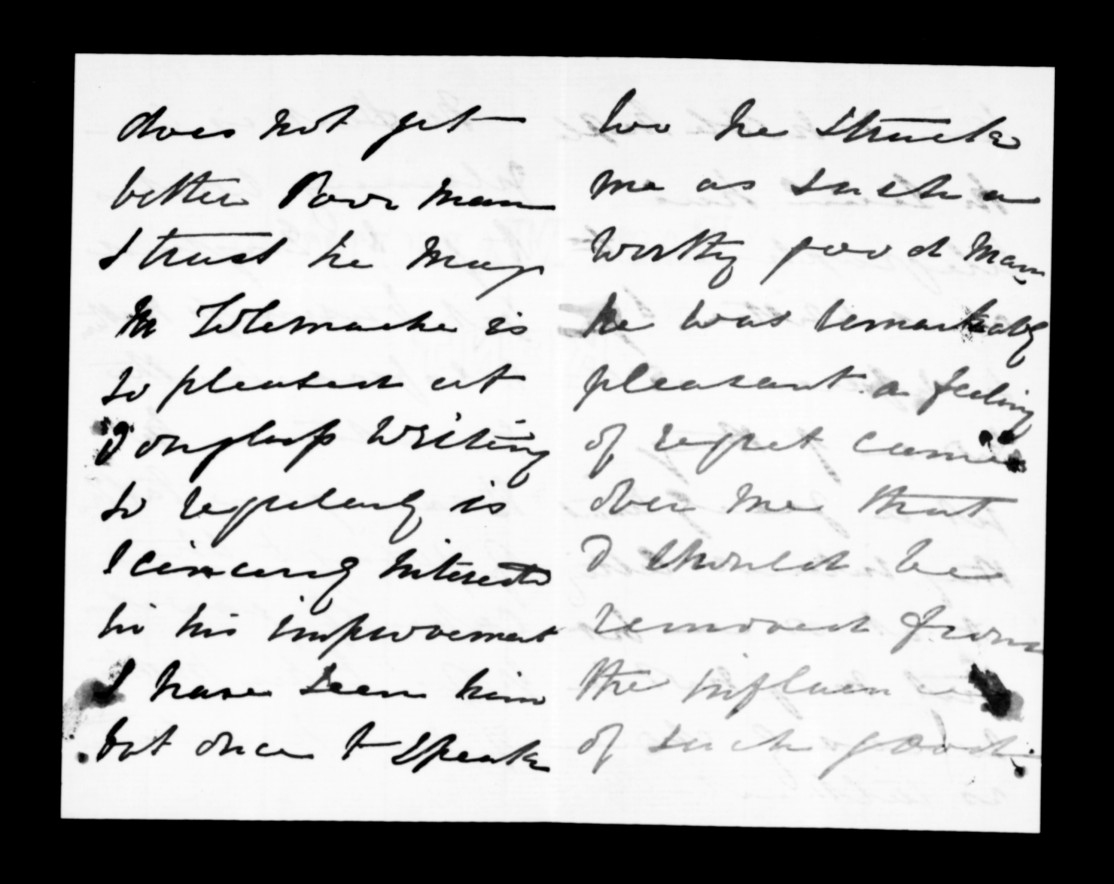 does not get
better Poor Man
I trust he may
Mr Telemache is
so pleased at
Douglass writing
so regularly is
sincerely interested
in his improvement
I have seen him
but once to speak
too he struck
me as such a
worthy good Man
he was remarkably
pleasant a feeling
of regret came
over me that
I should be
removed from
the influence
of such good